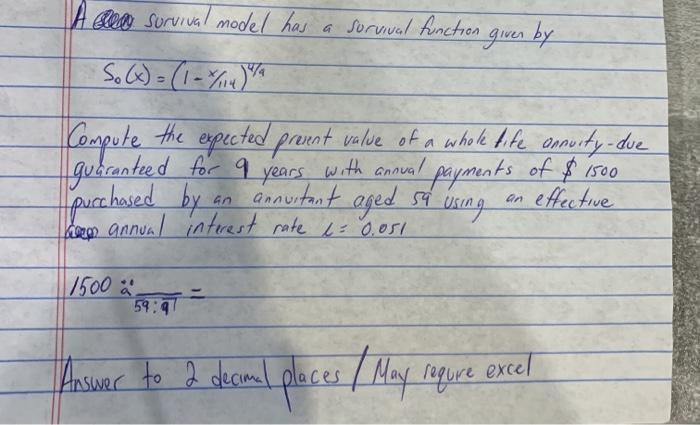 A survival model has a survival function given by
S₀(x) = (1 - x/114)^4/9
Compute the expected present value of a whole life annuity-due
guaranteed for 9 years with annual payments of $ 1500
purchased by an annuitant aged 59 using an effective
annual interest rate i = 0.051
1500 ä 59:9 =
Answer to 2 decimal places / May requre excel